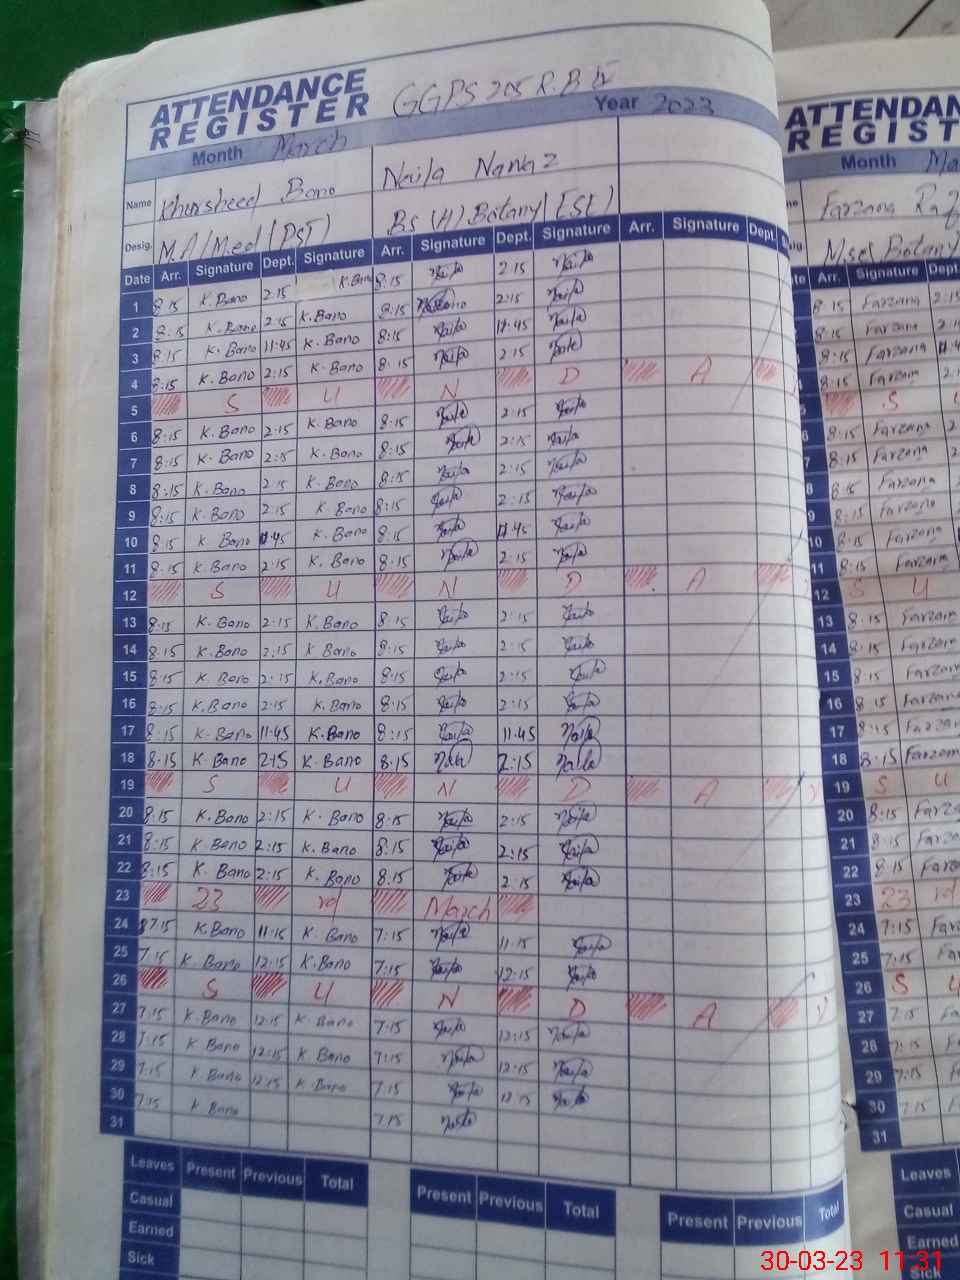 ATTENDANCE REGISTER GGPS 205 R.B
Month March Year 2023
Name Khursheed Bano Naila Nawaz
Desig. M.A/M.ed (PST) BS (H) Botany (ESE)
Date Arr. Signature Dept. Signature Arr. Signature Dept. Signature Arr. Signature Dept.
1 8:15 K.Bano 2:15 K.Bano 8:15 Naila 2:15 Naila
2 8:15 K.Bano 2:15 K.Bano 8:15 2:15 Naila
3 8:15 K.Bano 11:45 K.Bano 8:15 Naila 11:45 Naila
4 8:15 K.Bano 2:15 K.Bano 8:15 Naila 2:15 Naila
5 S U N D A Y
6 8:15 K.Bano 2:15 K.Bano 8:15 Naila 2:15 Naila
7 8:15 K.Bano 2:15 K.Bano 8:15 Naila 2:15 Naila
8 8:15 K.Bano 2:15 K.Bano 8:15 Naila 2:15 Naila
9 8:15 K.Bano 2:15 K.Bano 8:15 Naila 2:15 Naila
10 8:15 K.Bano 11:45 K.Bano 8:15 Naila 11:45 Naila
11 8:15 K.Bano 2:15 K.Bano 8:15 Naila 2:15 Naila
12 S U N D A Y
13 8:15 K.Bano 2:15 K.Bano 8:15 Naila 2:15 Naila
14 8:15 K.Bano 2:15 K.Bano 8:15 Naila 2:15 Naila
15 8:15 K.Bano 2:15 K.Bano 8:15 Naila 2:15 Naila
16 8:15 K.Bano 2:15 K.Bano 8:15 Naila 2:15 Naila
17 8:15 K.Bano 11:45 K.Bano 8:15 Naila 11:45 Naila
18 8:15 K.Bano 2:15 K.Bano 8:15 Naila 2:15 Naila
19 S U N D A Y
20 8:15 K.Bano 2:15 K.Bano 8:15 Naila 2:15 Naila
21 8:15 K.Bano 2:15 K.Bano 8:15 Naila 2:15 Naila
22 8:15 K.Bano 2:15 K.Bano 8:15 Naila 2:15 Naila
23 23 rd March
24 7:15 K.Bano 11:15 K.Bano 7:15 Naila 11:15 Naila
25 7:15 K.Bano 12:15 K.Bano 7:15 Naila 12:15 Naila
26 S U N D A Y
27 7:15 K.Bano 12:15 K.Bano 7:15 Naila 12:15 Naila
28 7:15 K.Bano 12:15 K.Bano 7:15 Naila 12:15 Naila
29 7:15 K.Bano 12:15 K.Bano 7:15 Naila 12:15 Naila
30 7:15 K.Bano 7:15 Naila
31
Leaves Present Previous Total Present Previous Total Present Previous Total
Casual
Earned
Sick
ATTENDAN
REGIST
Month Ma
Farzana
M.sc Botany
Arr. Signature Dept.
8:15 Farzana 2:15
8:15 Farzana 2:1
8:15 Farzana
8:15 Farzana 2.
5 S U
6 8:15 Farzana 2
7 8:15 Farzana 2
8 8:15 Farzana
9 8:15 Farzana
10 8:15 Farzana
11 8:15 Farzana
12 S U
13 8:15 Farzana
14 8:15 Farzana
15 8:15 Farzana
16 8:15 Farzana
17 8:15 Farzan
18 8:15 Farzan
19 S U
20 8:15 Farz
21 8:15 Farz
22 8:15 Farz
23 23 rd
24 7:15 Farz
25 7:15 Fa
26 S U
27 7:15 Fa
28 7:15 Fa
29 7:15 Fa
30 7:15 F
31
Leaves
Casual
Earned
Sick
30-03-23 11:31